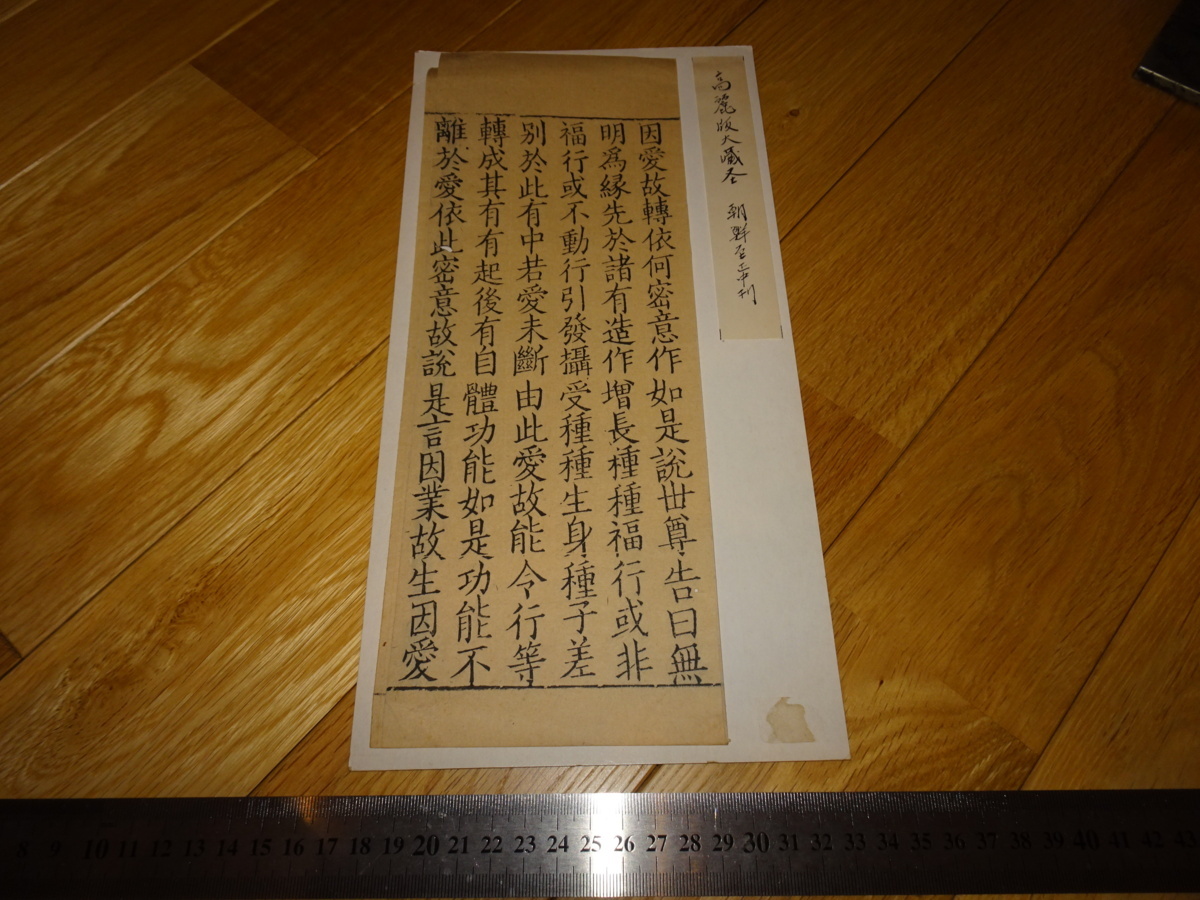 高麗版大蔵圣　朝鮮至正中刊
因愛故轉依何密意作如是說世尊告曰無
明爲緣先於諸有造作增長種種福行或非
福行或不動行引發攝受種種生身種子差
別於此有中若愛未斷由此愛故能令行等
轉成其有有起後有自體功能如是功能不
離於愛依此密意故說是言因業故生因愛
8 9 10 11 12 13 14 15 16 17 18 19 20 21 22 23 24 25 26 27 28 29 30 31 32 33 34 35 36 37 38 39 40 41 42 43